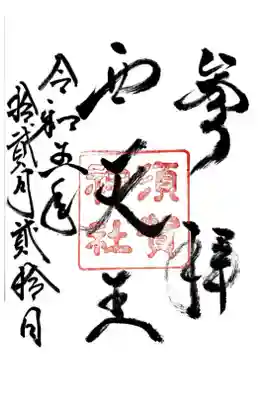 奉拝
西天王
須賀神社
令和五年
拾弐月弐拾日